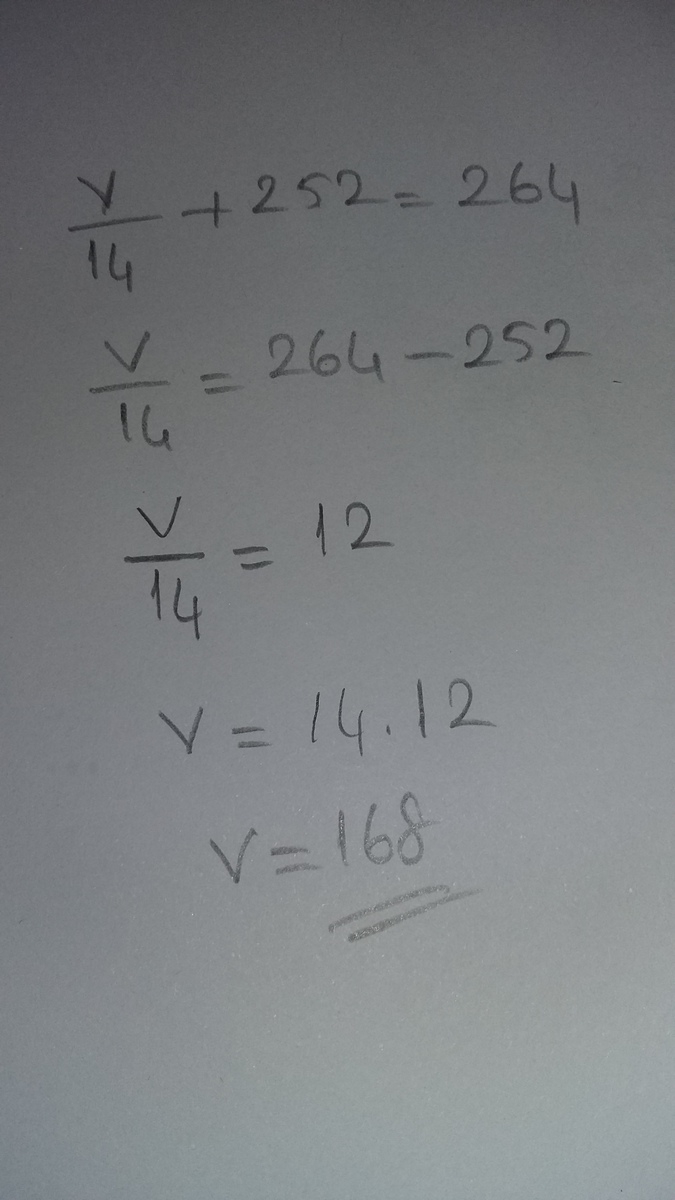 v/14 + 252 = 264
v/14 = 264 - 252
v/14 = 12
v = 14.12
v = 168